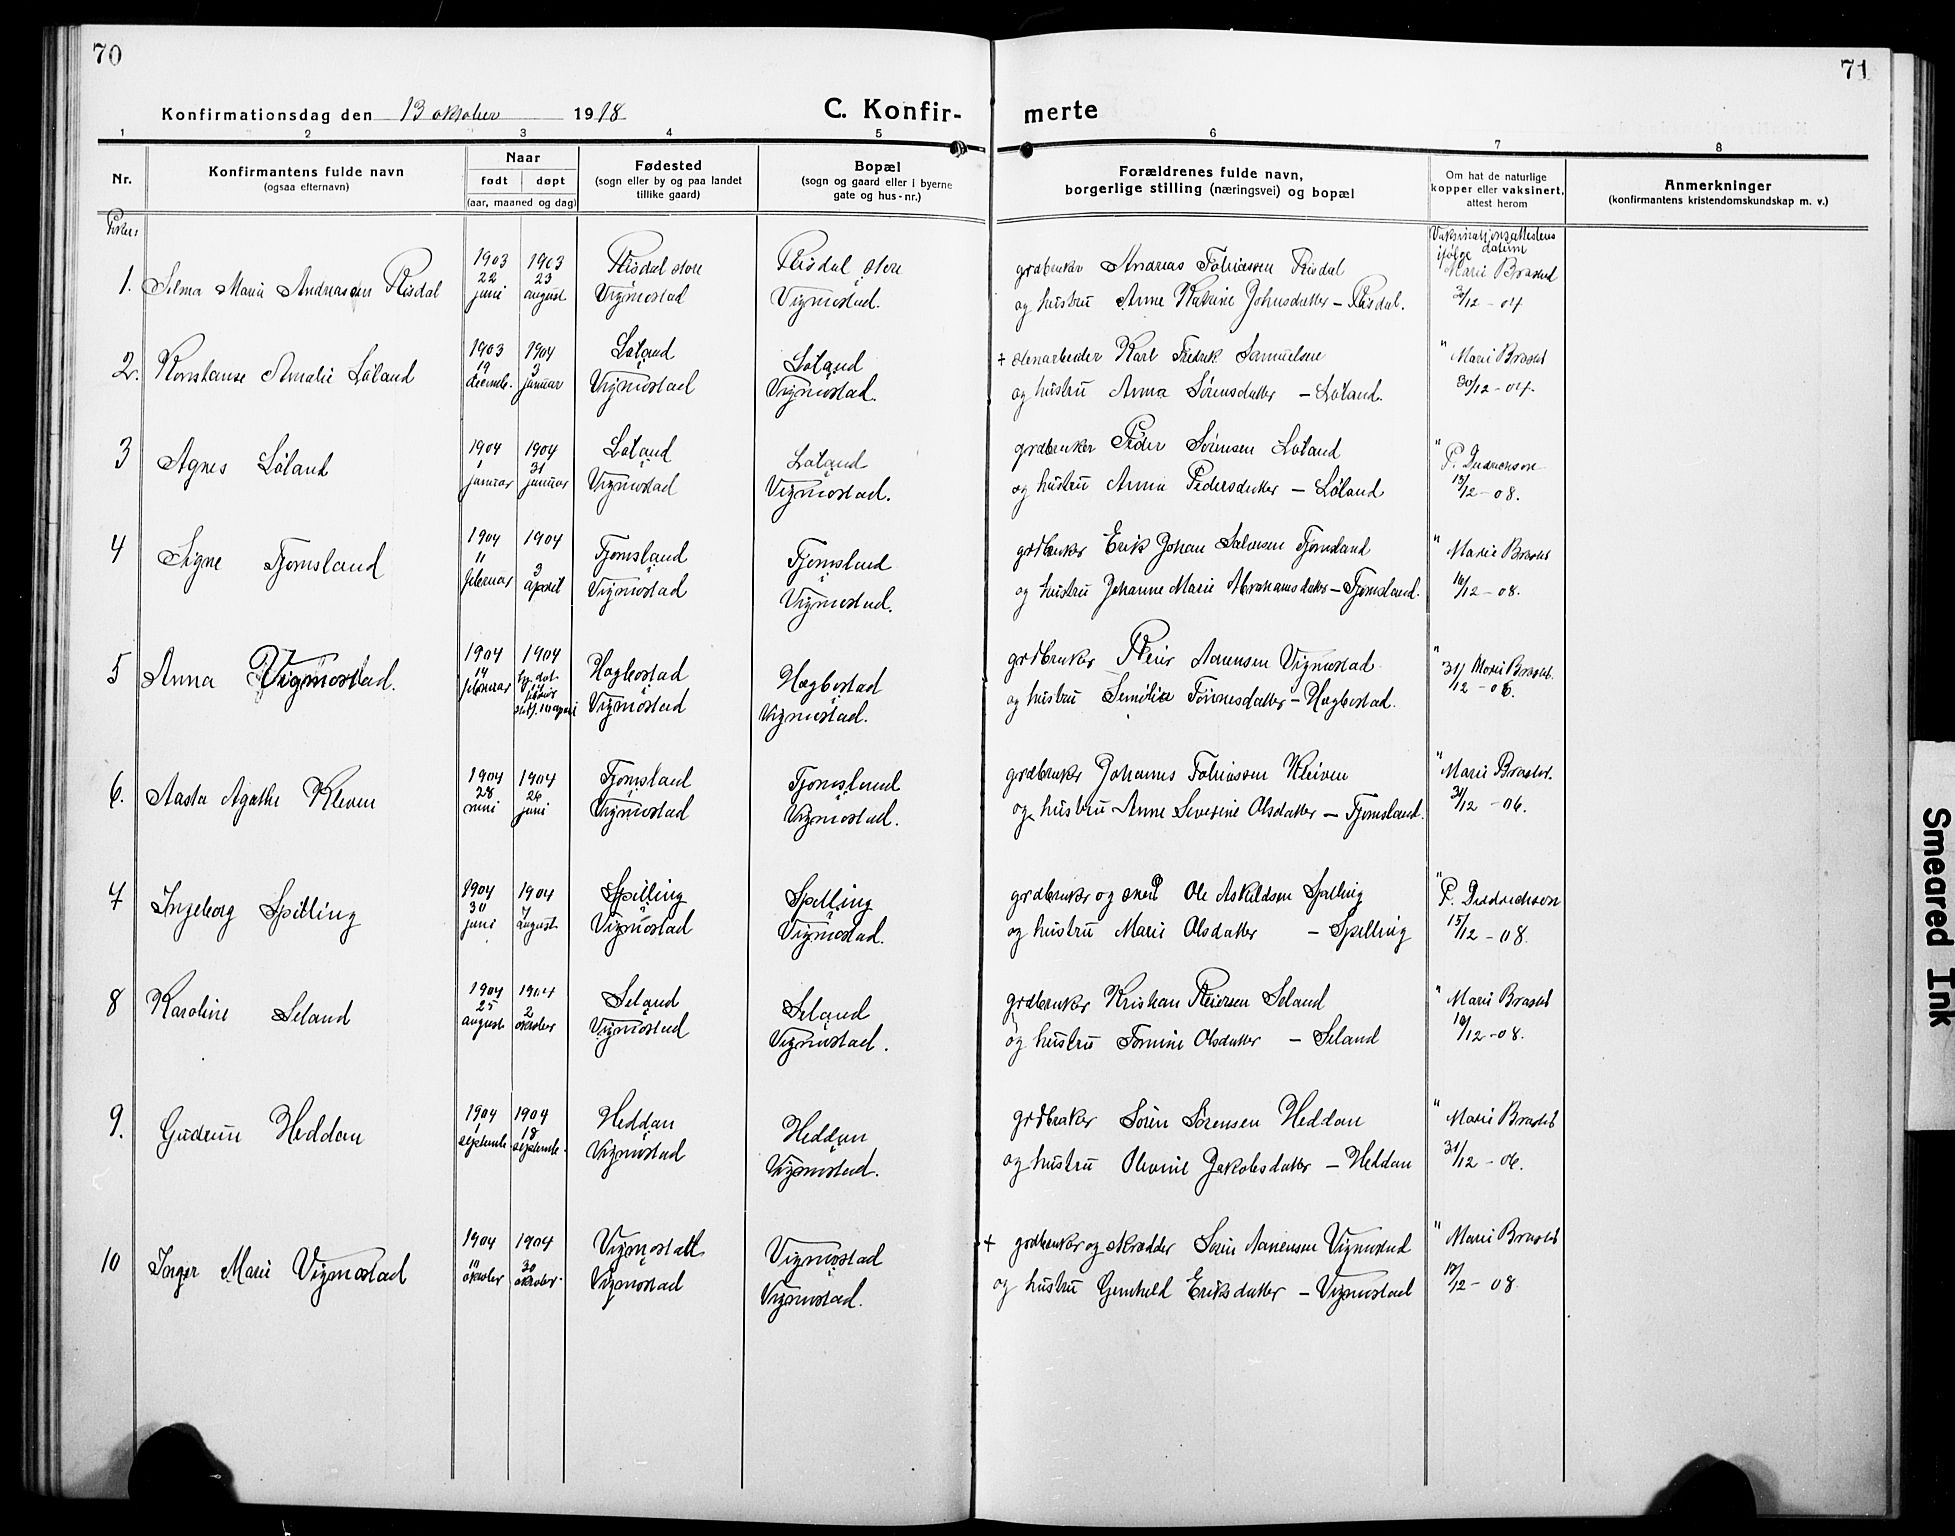 70
71
Konfirmationsdag den 13 oktober 1918
C. Konfir-
merte
1 2 3 4 5 6 7 8
Nr.
Konfirmantens fulde navn
(ogsaa efternavn)
Naar
født døpt
(aar, maaned og dag)
Fødested
(sogn eller by og paa landet
tillike gaard)
Bopæl
(sogn og gaard eller i byerne
gate og hus-nr.)
Forældrenes fulde navn,
borgerlige stilling (næringsvei) og bopæl
Om hat de naturlige
kopper eller vaksinert,
attest herom
Anmerkninger
(konfirmantens kristendomskundskap m. v.)
Piker:
Vaksinationsattestens
ifølge datum
1. Selma Marie Andreassen Risdal
1903 22 juni
1903 23 august
Risdal store
Vigmostad
Risdal store
Vigmostad.
grdbruker Andreas Tobiassen Risdal
og hustru Anne Katrine Johnsdatter – Risdal.
Marie Brastad
31/12 – 04
2. Konstanse Amalie Løland
1903 19 decemb.
1904 3 januar
Løland
Vigmostad
Løland
Vigmostad.
+ stenarbeider Karl Fredrik Samuelsen
og hustru Anna Sørensdatter – Løland.
" Marie Brastad
30/12 – 04.
3 Agnes Løland
1904 1 januar
1904 31 januar
Løland
Vigmostad
Løland
Vigmostad.
grdbruker Peder Sørensen Løland
og hustru Anna Pedersdatter – Løland
" P. Diedrichson
13/12 – 08.
4 Signe Fjomsland
1904 11 februar
1904 3 april
Fjomsland
Vigmostad
Fjomsland
Vigmostad.
grdbruker Erik Johan Salvesen Fjomsland
og hustru Johanne Marie Abrahamsdatter – Fjomsland.
" Marie Brastad
16/12 – 08.
5 Anna Vigmostad.
1904 14 februar
1904
Hægbostad
Vigmostad
Hægbostad
Vigmostad.
grdbruker Reier Aanensen Vigmostad
og hustru Tønnesdatter – Hægbostad.
" Marie Brastad.
31/12 – 06.
6. Aasta Agathe Kleven
1904 28 mai
1904 26 juni
Fjomsland
Vigmostad
Fjomsland
Vigmostad.
grdbruker Johannes Tobiassen Kleiven
og hustru Anne Severine Olsdatter – Fjomsland.
" Marie Brastad.
31/12 – 06.
7 Ingeborg Spilling
1904 30 juni
1904 7 august
Spilling
Vigmostad
Spilling
Vigmostad.
grdbruker og Ole Askildsen Spilling
og hustru Marie Olsdatter – Spilling
" P. Diedrichson
15/12 – 08.
8 Karoline Seland
1904 25 august
1904 2 oktober
Seland
Vigmostad
Seland
Vigmostad.
grdbruker Kristian Reiersen Seland
og hustru Tomine Olsdatter – Seland
" Marie Brastad
16/12 – 08.
9. Gudrun Heddan
1904 1 septemb.
1904 18 septemb.
Heddan
Vigmostad
Heddan
Vigmostad.
grdbruker Søren Sørensen Heddan
og hustru Olevine Jakobsdatter – Heddan
" Marie Brastad
31/12 – 06.
10 Inger Marie Vigmostad
1904 10 oktober
1904 30 oktober
Vigmostad
Vigmostad
Vigmostad
Vigmostad.
+ grdbruker og skrædder Søren Aanensen Vigmostad
og hustru Gunhild Eriksdatter – Vigmostad
" Marie Brastad
17/12 – 08.
Smeared Ink